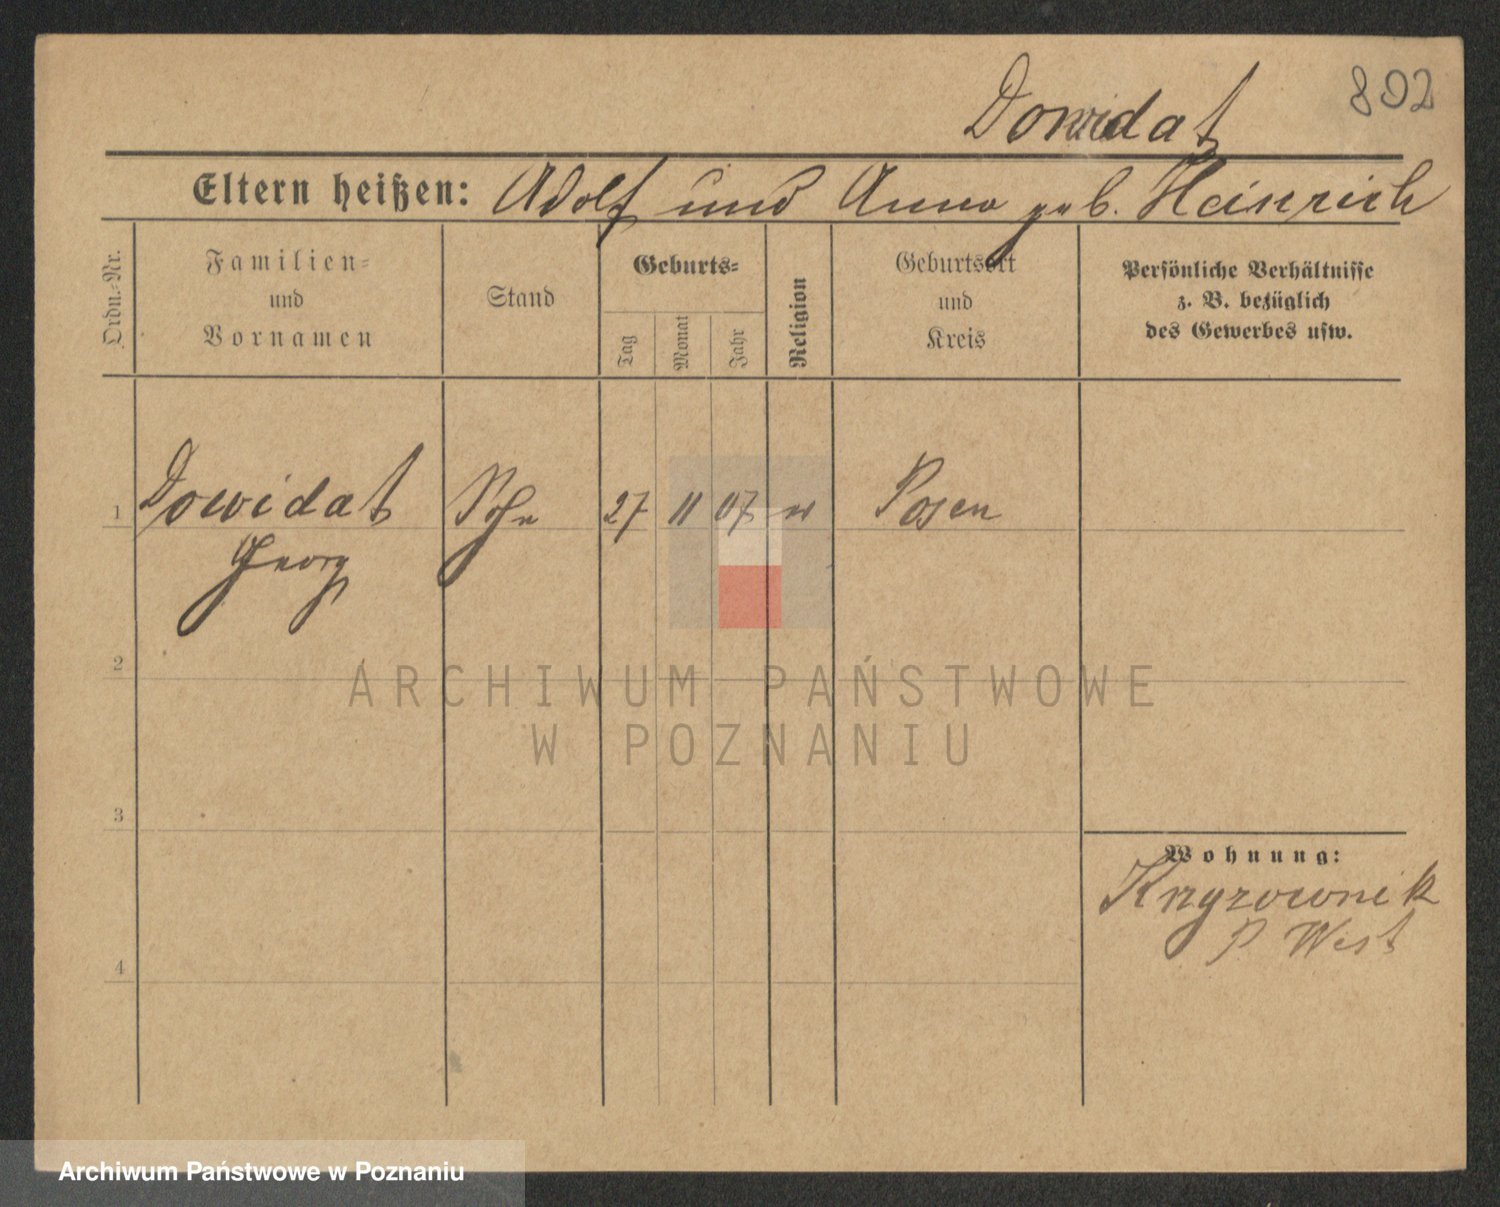 802
Dowidat
Eltern heißen: Adolf und Anna geb. Heinrich
Ordn.-Nr.
Familien-
und
Vornamen
Stand
Geburts-
Tag
Monat
Jahr
Religion
Geburtsort
und
Kreis
Persönliche Verhältnisse
z. B. bezüglich
des Gewerbes usw.
1 Dowidat Sohn 27 11 07 Posen
Georg
2
3
4
Wohnung:
Krzyzownik
P. West
ARCHIWUM PAŃSTWOWE
W POZNANIU
Archiwum Państwowe w Poznaniu